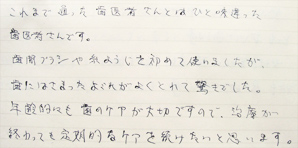 これまで通った歯医者さんとはひと味違った
歯医者さんです。
歯間ブラシや糸ようじを初めて使いましたが、
歯にはさまったよごれがよくとれて驚きでした。
年齢的にも歯のケアが大切ですので、治療が
終わっても定期的なケアを続けたいと思います。